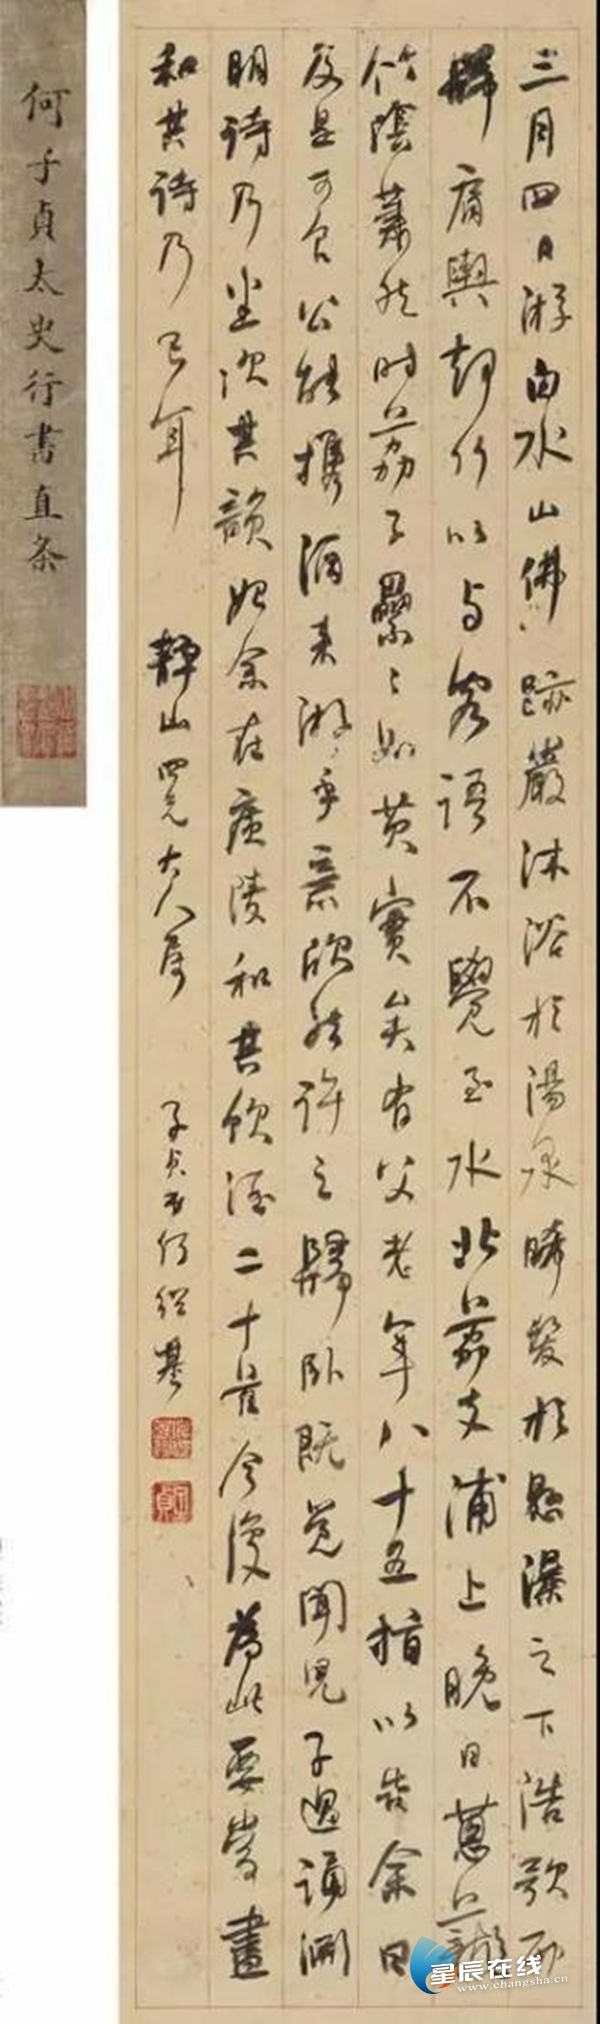 三月四日游白水山佛跡巖沐浴於湯泉晞髮於懸瀑之下浩歌而
歸肩輿却行以与客語不覺至水北荔支浦上晚日蔥曨
竹陰蕭然時荔子纍〻如芡實矣有父老年八十五指以告余曰
及是可食公能攜酒來游乎意欣然許之歸臥既覺聞兒子過誦淵
明詩乃坐次其韻始余在廣陵和其飲酒二十首今復為此要當盡
和其詩乃已耳
靜山四兄大人屬
子貞弟何紹基
何子貞太史行書直条
星辰在线
www.changsha.cn